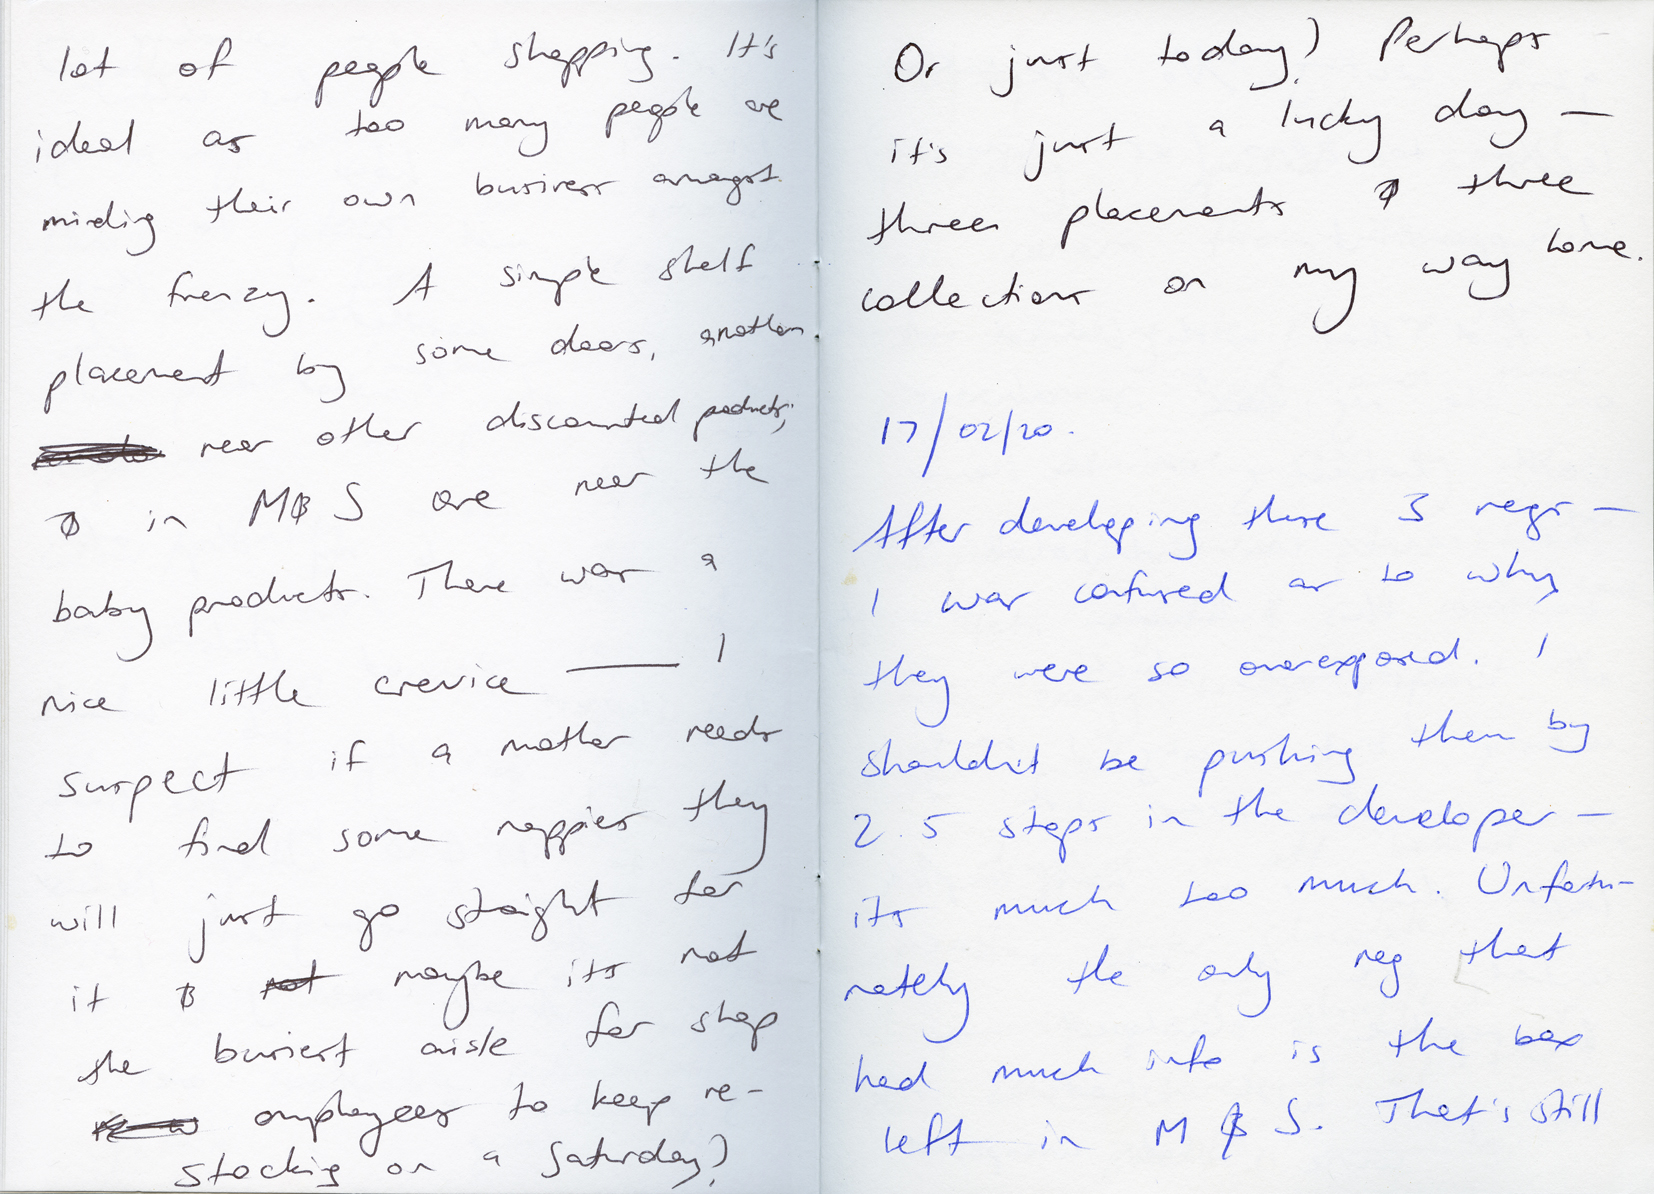 lot of people shopping. It's
ideal as too many people are
minding their own business amongst
the frenzy. A simple shelf
placement by some doors, another
near other discounted products,
& in M&S are near the
baby products. There was a
nice little crevice — I
suspect if a mother needs
to find some nappies they
will just go straight for
it & not maybe its not
the busiest aisle for shop
employees to keep re-
stocking on a Saturday?
Or just today? Perhaps
it's just a lucky day —
three placements & three
collections on my way home.
17/02/20.
After developing these 3 negs —
I was confused as to why
they were so overexposed. I
shouldnt be pushing them by
2.5 stops in the developer —
its much too much. Unfortu-
nately the only neg that
had much info is the box
left in M&S. That's still